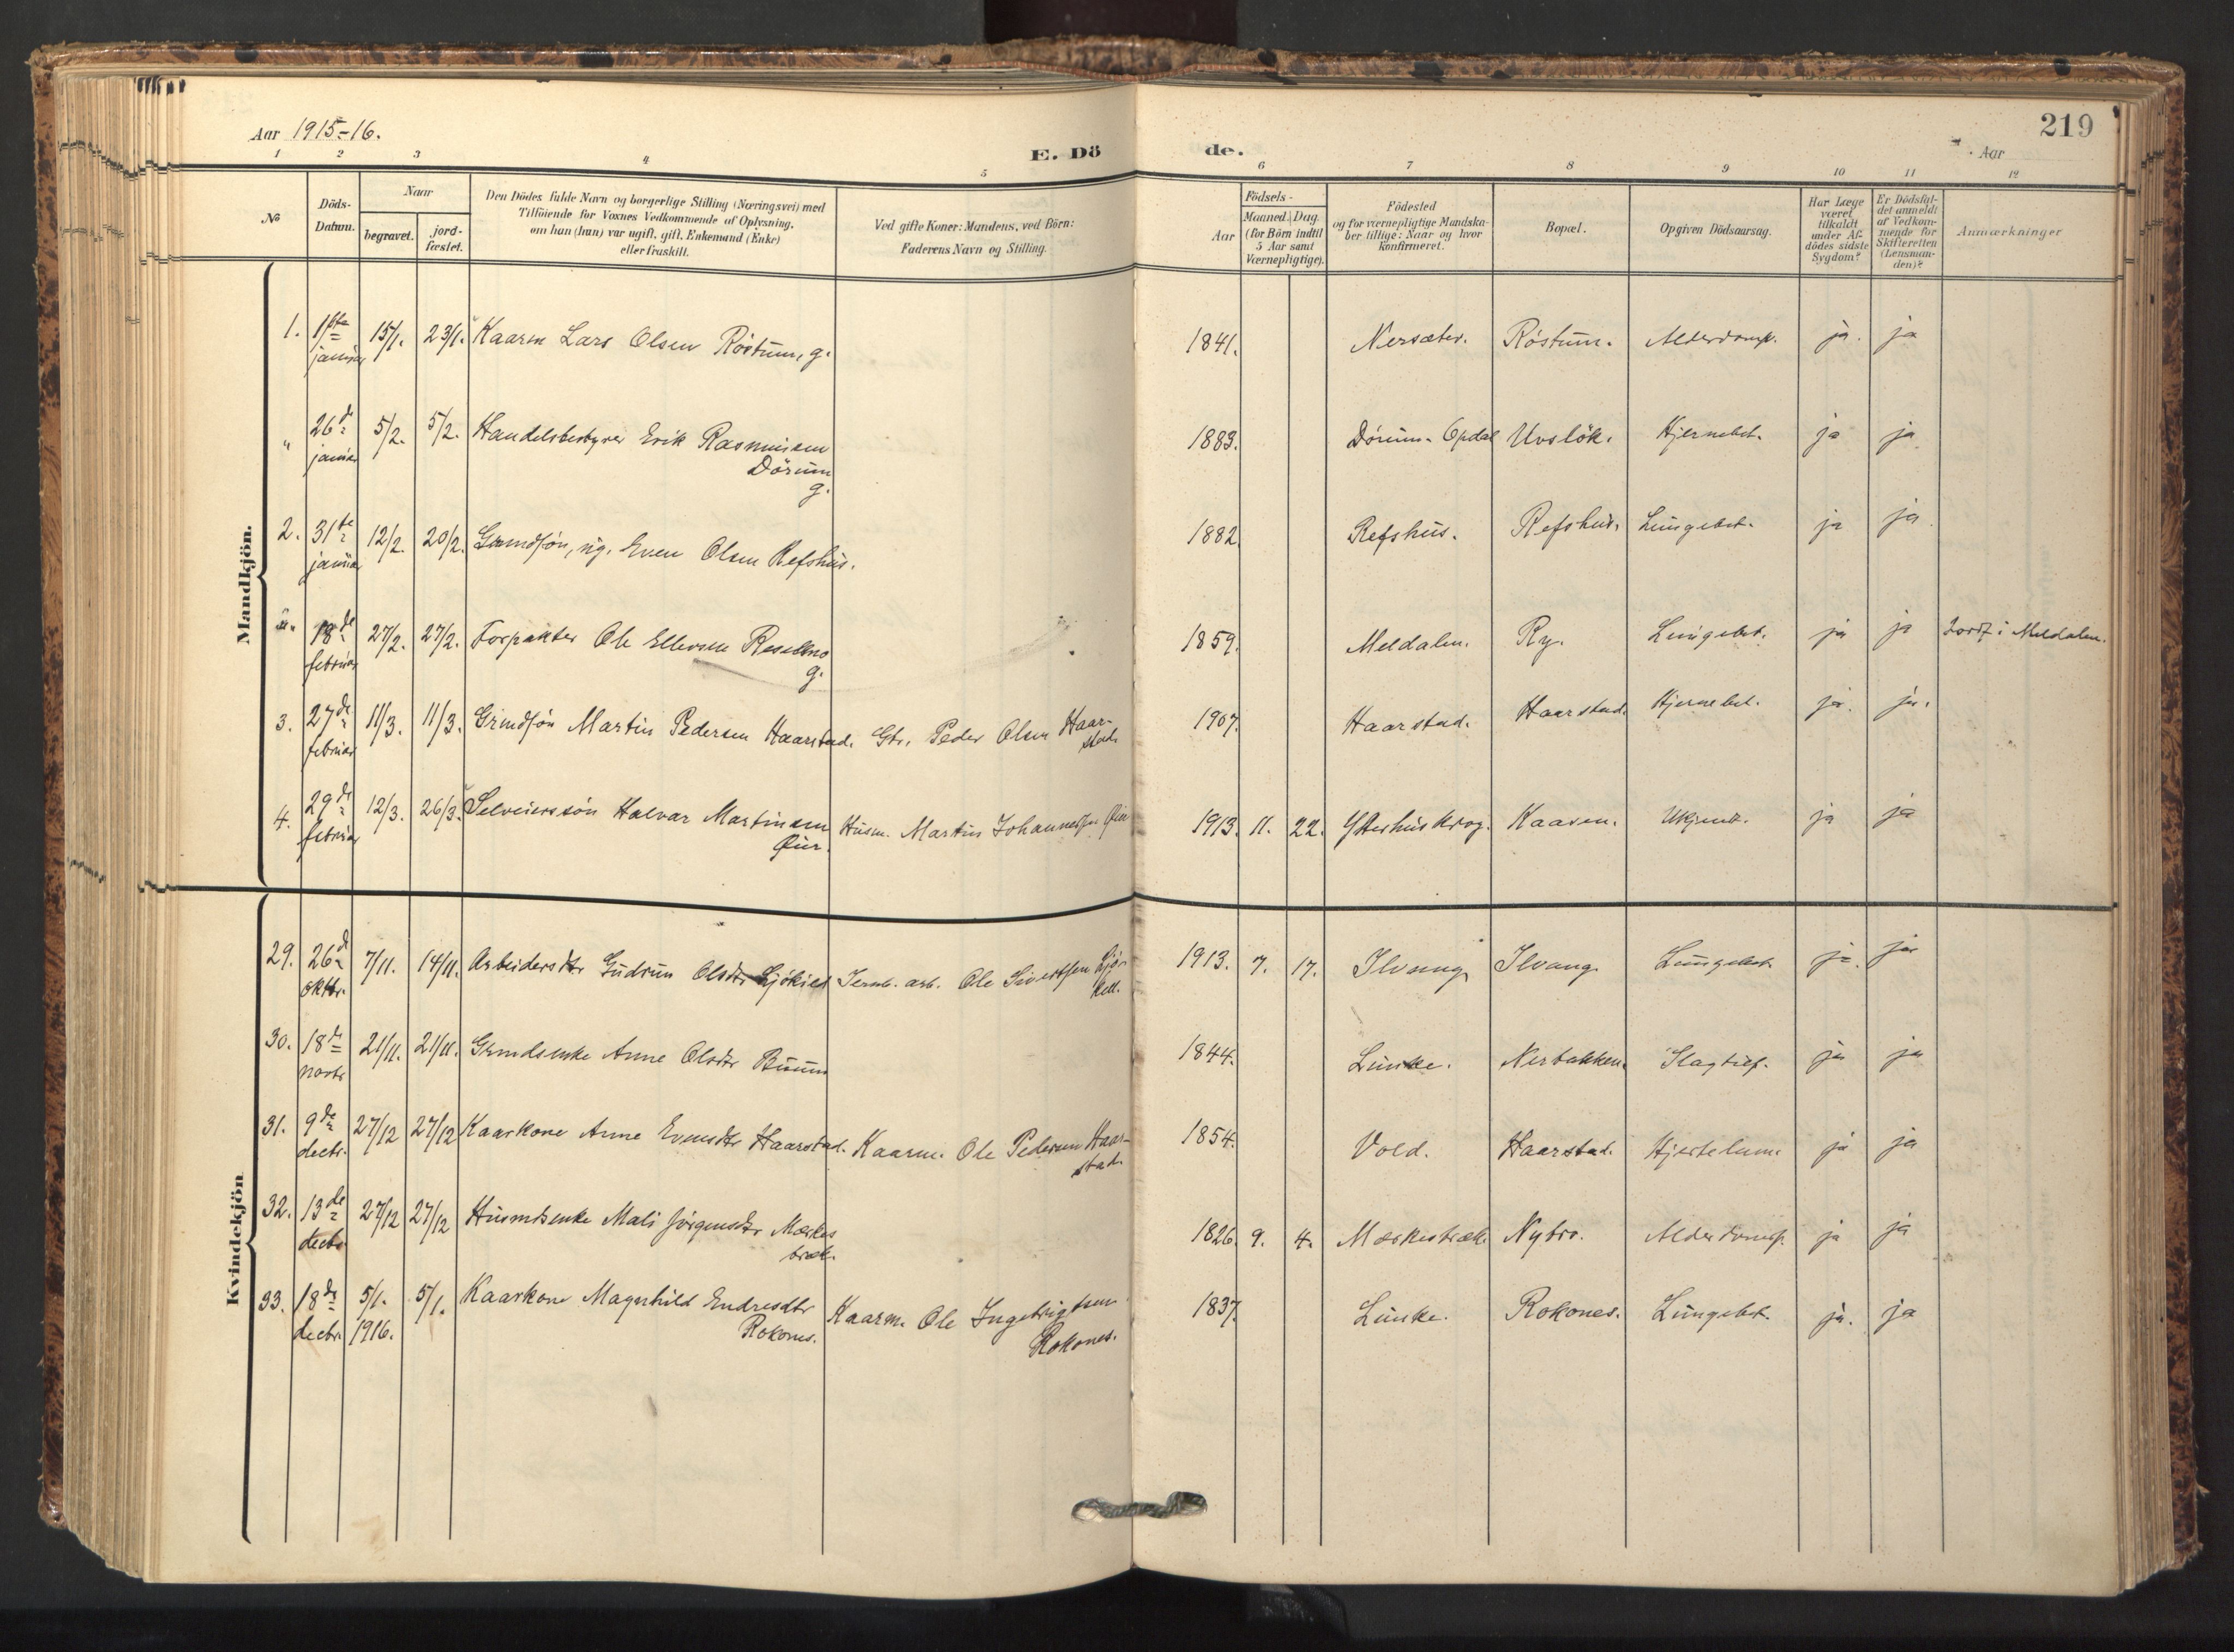 Aar 1915-16.
E. Dö de.
219
Aar
1 2 3 4 5 6 7 8 9 10 11 12
No
Döds-Datum.
Naar
begravet.
jord-fæstet.
Den Dödes fulde Navn og borgerlige Stilling (Næringsvei) med
Tilföiende for Voxnes Vedkommende af Oplysning,
om han (hun) var ugift, gift, Enkemand (Enke)
eller fraskilt.
Ved gifte Koner: Mandens, ved Börn:
Faderens Navn og Stilling.
Födsels-
Aar
Maaned. Dag.
(for Börn indtil
5 Aar samt
Værnepligtige).
Födested
og for værnepligtige Mandska-
ber tillige: Naar og hvor
Konfirmeret.
Bopæl.
Opgiven Dödsaarsag.
Har Læge
været
tilkaldt
under Af-
dödes sidste
Sygdom?
Er Dödsfal-
det anmeldt
af Vedkom-
mende for
Skifteretten
(Lensman-
den)?
Anmærkninger
Mandkjön.
1. 1ste januar 15/1. 23/1. Kaarm Lars Olsen Röstum, g. 1841. Nersæter. Röstum. Alderdomsv. ja. ja
" 26de januar 5/2. 5/2. Handelsbestyrer Erik Rasmussen Dörum g. 1883. Dörum. Opdal Uvslök. Hjernebet. ja ja
2. 31te januar 12/2. 20/2. Grmdsön, ug. Even Olsen Refshus. 1882. Refshus. Refshus. Lungebet. ja ja
". 18de februar 27/2. 27/2. Forpakter Ole Ellevsen Resellmo g. 1859. Meldalen. Ry. Lungebet. ja ja Jordf i Meldalen.
3. 27de februar 11/3. 11/3. Grmdsön Martin Pedersen Haarstad. Gbr. Peder Olsen Haarstad. 1907. Haarstad. Haarstad. Hjernebet. ja. ja.
4. 29de februar 12/3. 26/3. Selveierssön Halvar Martinsen Øien. Husm. Martin Johannessen Øien 1913. 11. 22. Ytterhuskrog. Kaasen. Ukjendt. ja ja
Kvindekjön
29. 26de oktbr. 7/11. 14/11. Arbeidersdtr Gudrun Olsdtr Ljökiel Jernb. arb. Ole Sivertsen Ljökell. 1913. 7. 17. Ilvang Ilvang. Lungebet. ja. ja
30. 18de novbr 21/11. 21/11. Grmdsenke Anne Olsdtr Buum 1844. Lunke. Nerbakken. Slagtilf. ja ja
31. 9de decbr. 27/12 27/12 Kaarkone Anne Evensdtr Haarstad. Kaarm. Ole Pedersen Haarstad. 1854. Vold. Haarstad. Hjertelam. ja ja
32. 13de decbr 27/12 27/12 Husmdsenke Mali Jörgensdtr Mærkesbræk. 1826. 9. 4. Mærkesbræk. Nybro. Alderdomsv. ja ja
33. 18de decbr. 5/1. 1916. 5/1. Kaarkone Magnhild Endresdtr Rokones. Kaarm. Ole Ingebrigtsen Rokones. 1837. Lunke. Rokones. Lungebet. ja. ja